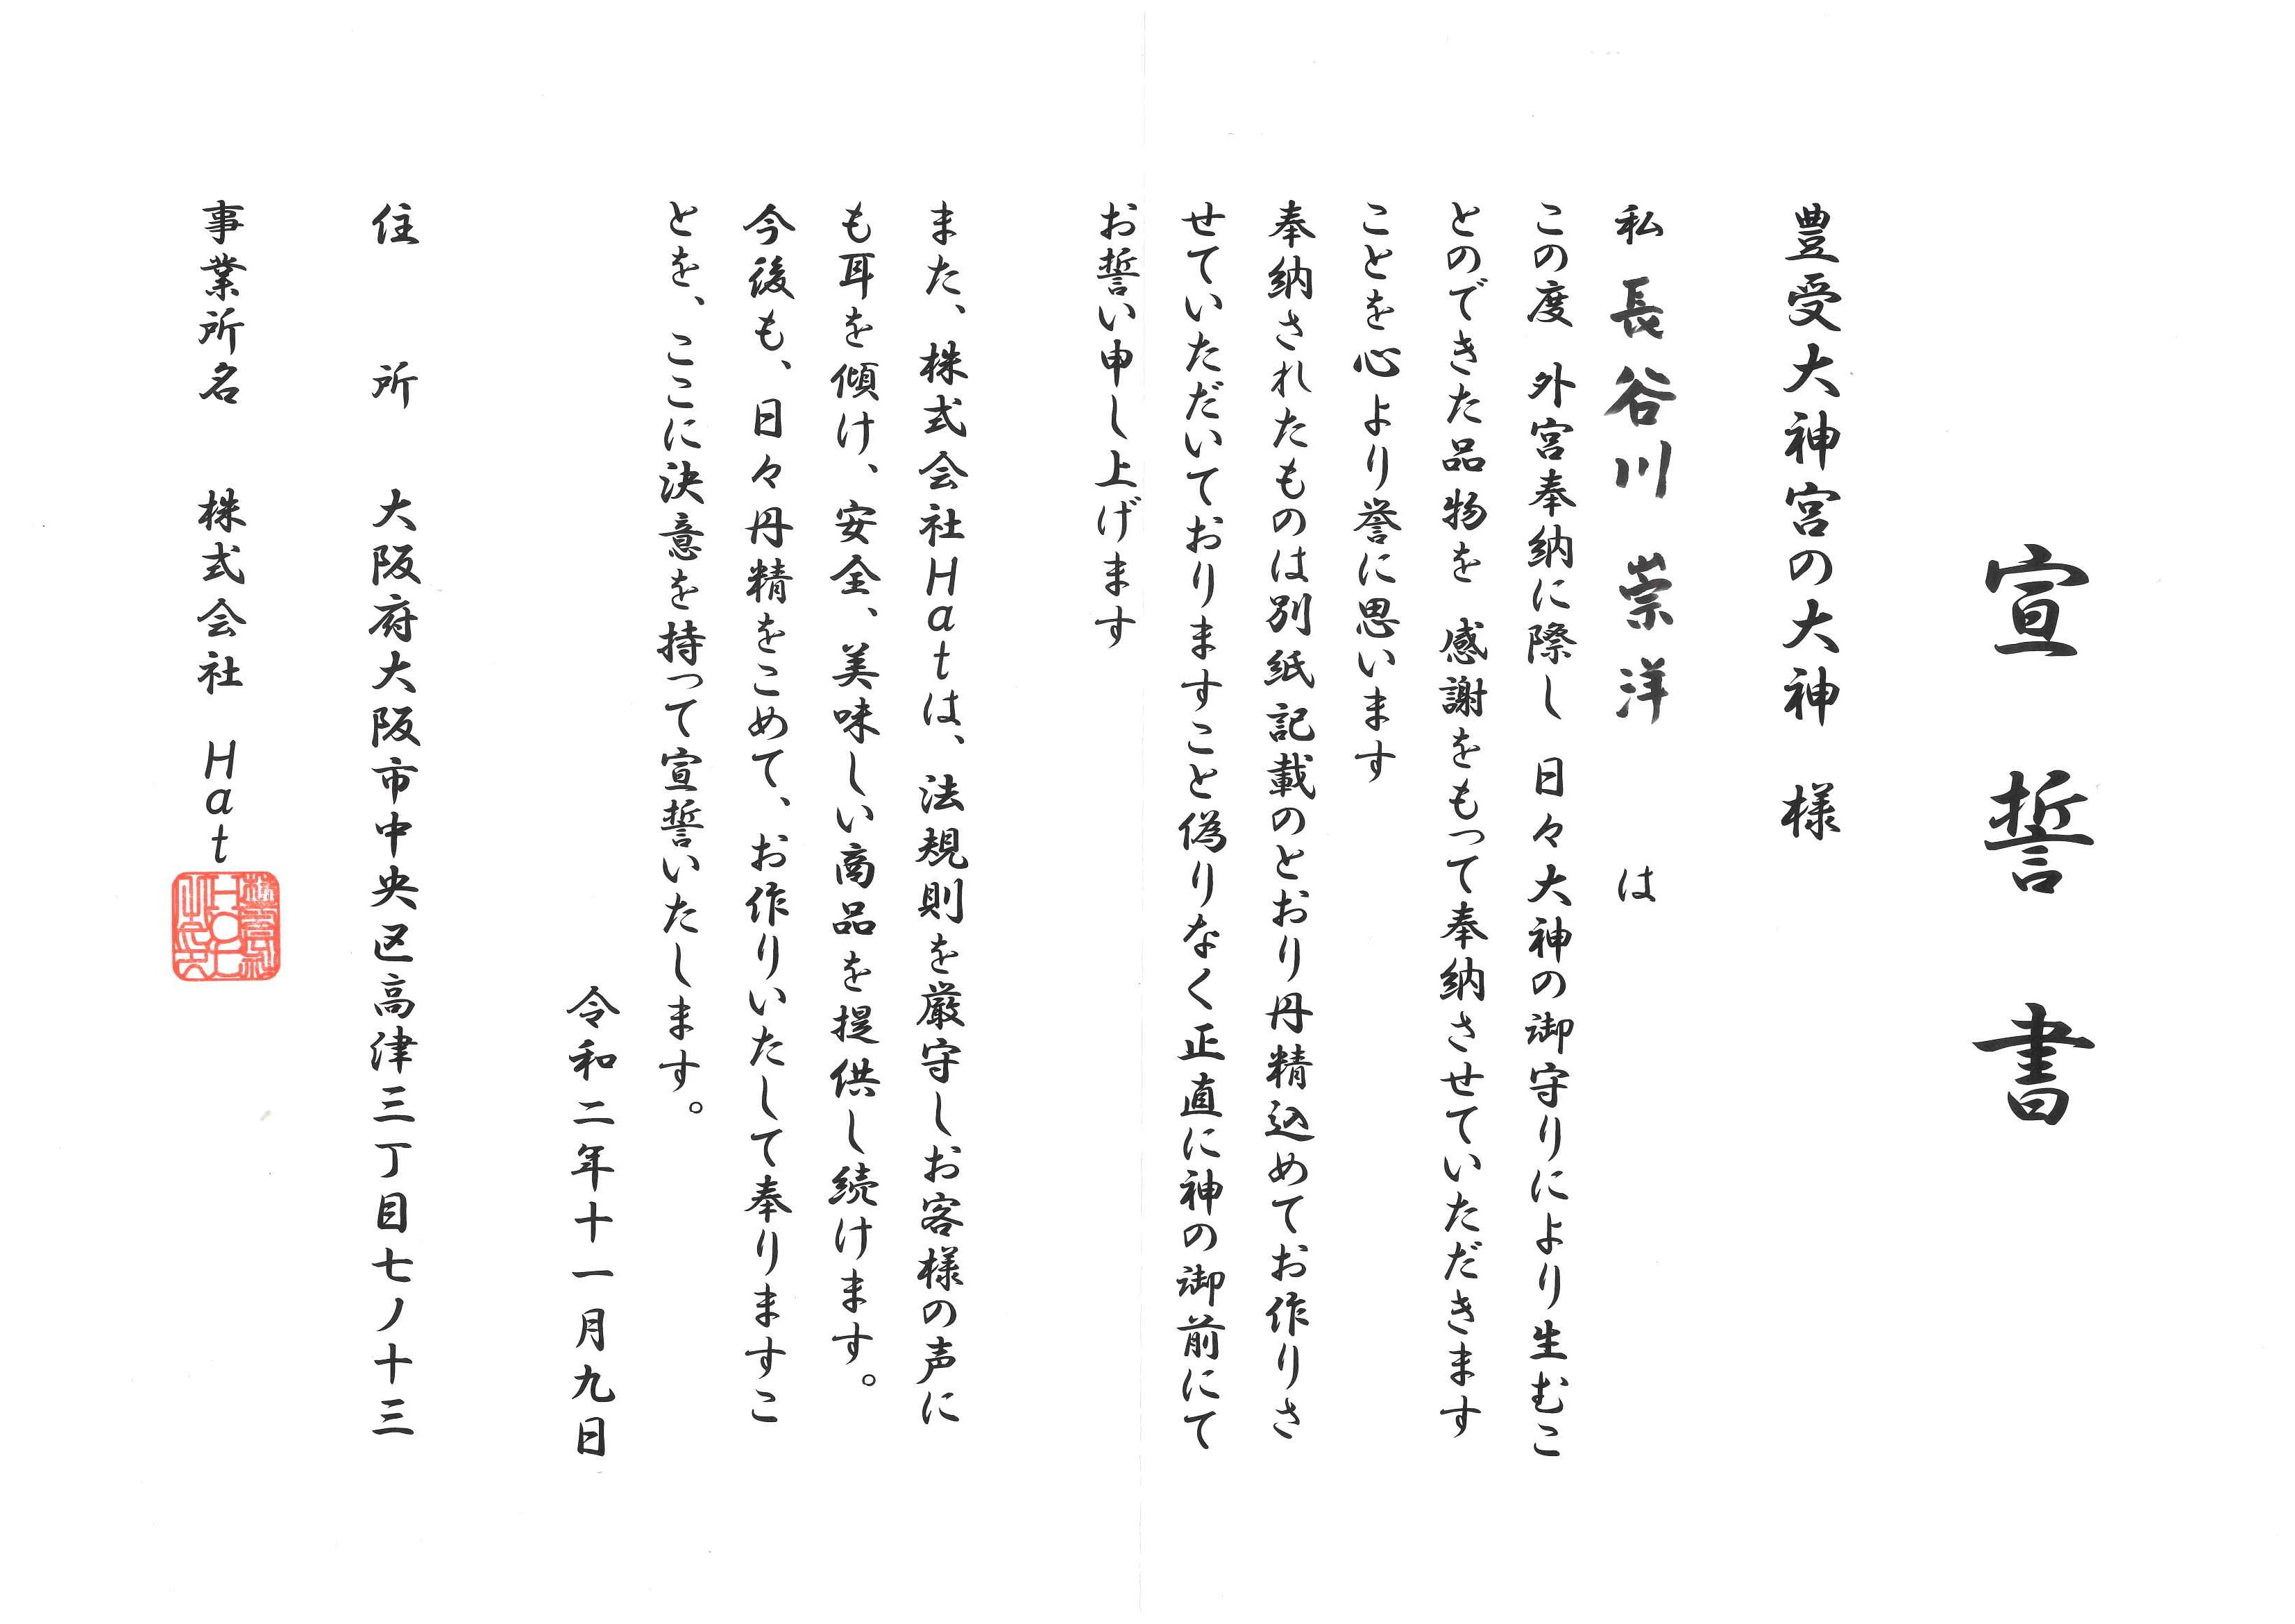 宣誓書
豊受大神宮の大神　様
私　長谷川　崇洋　は
この度　外宮奉納に際し　日々大神の御守りにより生むこ
とのできた品物を　感謝をもって奉納させていただきます
ことを心より誉に思います
奉納されたものは別紙記載のとおり丹精込めてお作りさ
せていただいておりますこと偽りなく正直に神の御前にて
お誓い申し上げます
また、株式会社Hatは、法規則を厳守しお客様の声に
も耳を傾け、安全、美味しい商品を提供し続けます。
今後も、日々丹精をこめて、お作りいたして奉りますこ
とを、ここに決意を持って宣誓いたします。
令和二年十一月九日
住　所　大阪府大阪市中央区高津三丁目七ノ十三
事業所名　株式会社　Hat